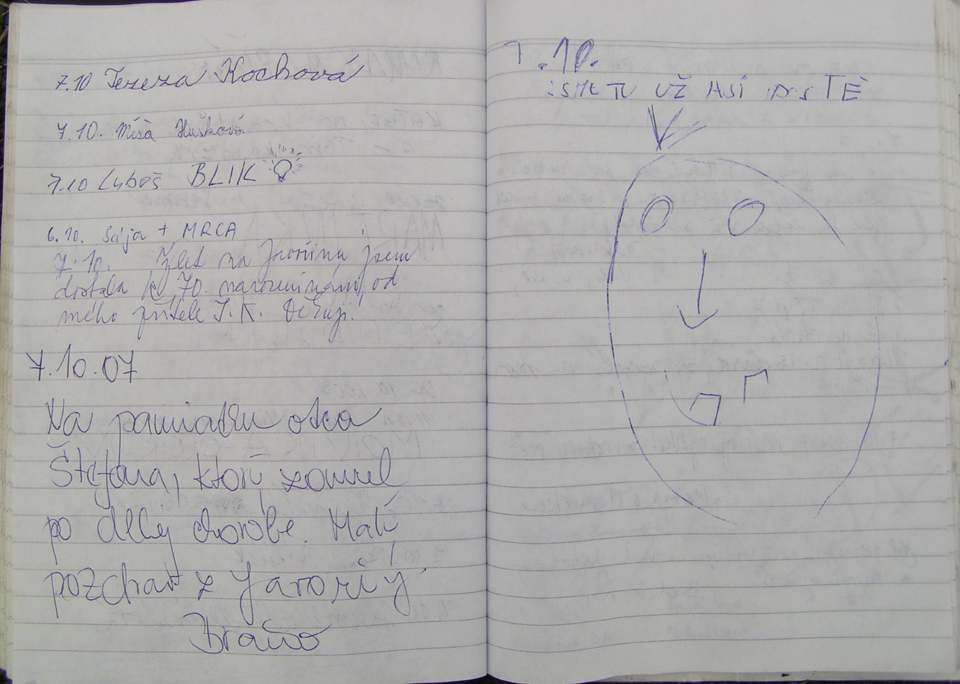 7.10 Tereza Kochová
7.10. Míša Hušková
7.10 Luboš BLIK
6.10. + MRCA
7.10. Výlet na Javořinu jsem
dostala k 70. narozeninám od
mého přítele J.K. Děkuji.
7.10.07
Na pamiatku otca
Štefana, ktorý zomrel
po dlhej chorobe. Malý
pozdrav z Javoriny.
Braňo
7.10.
TU UŽ ASI